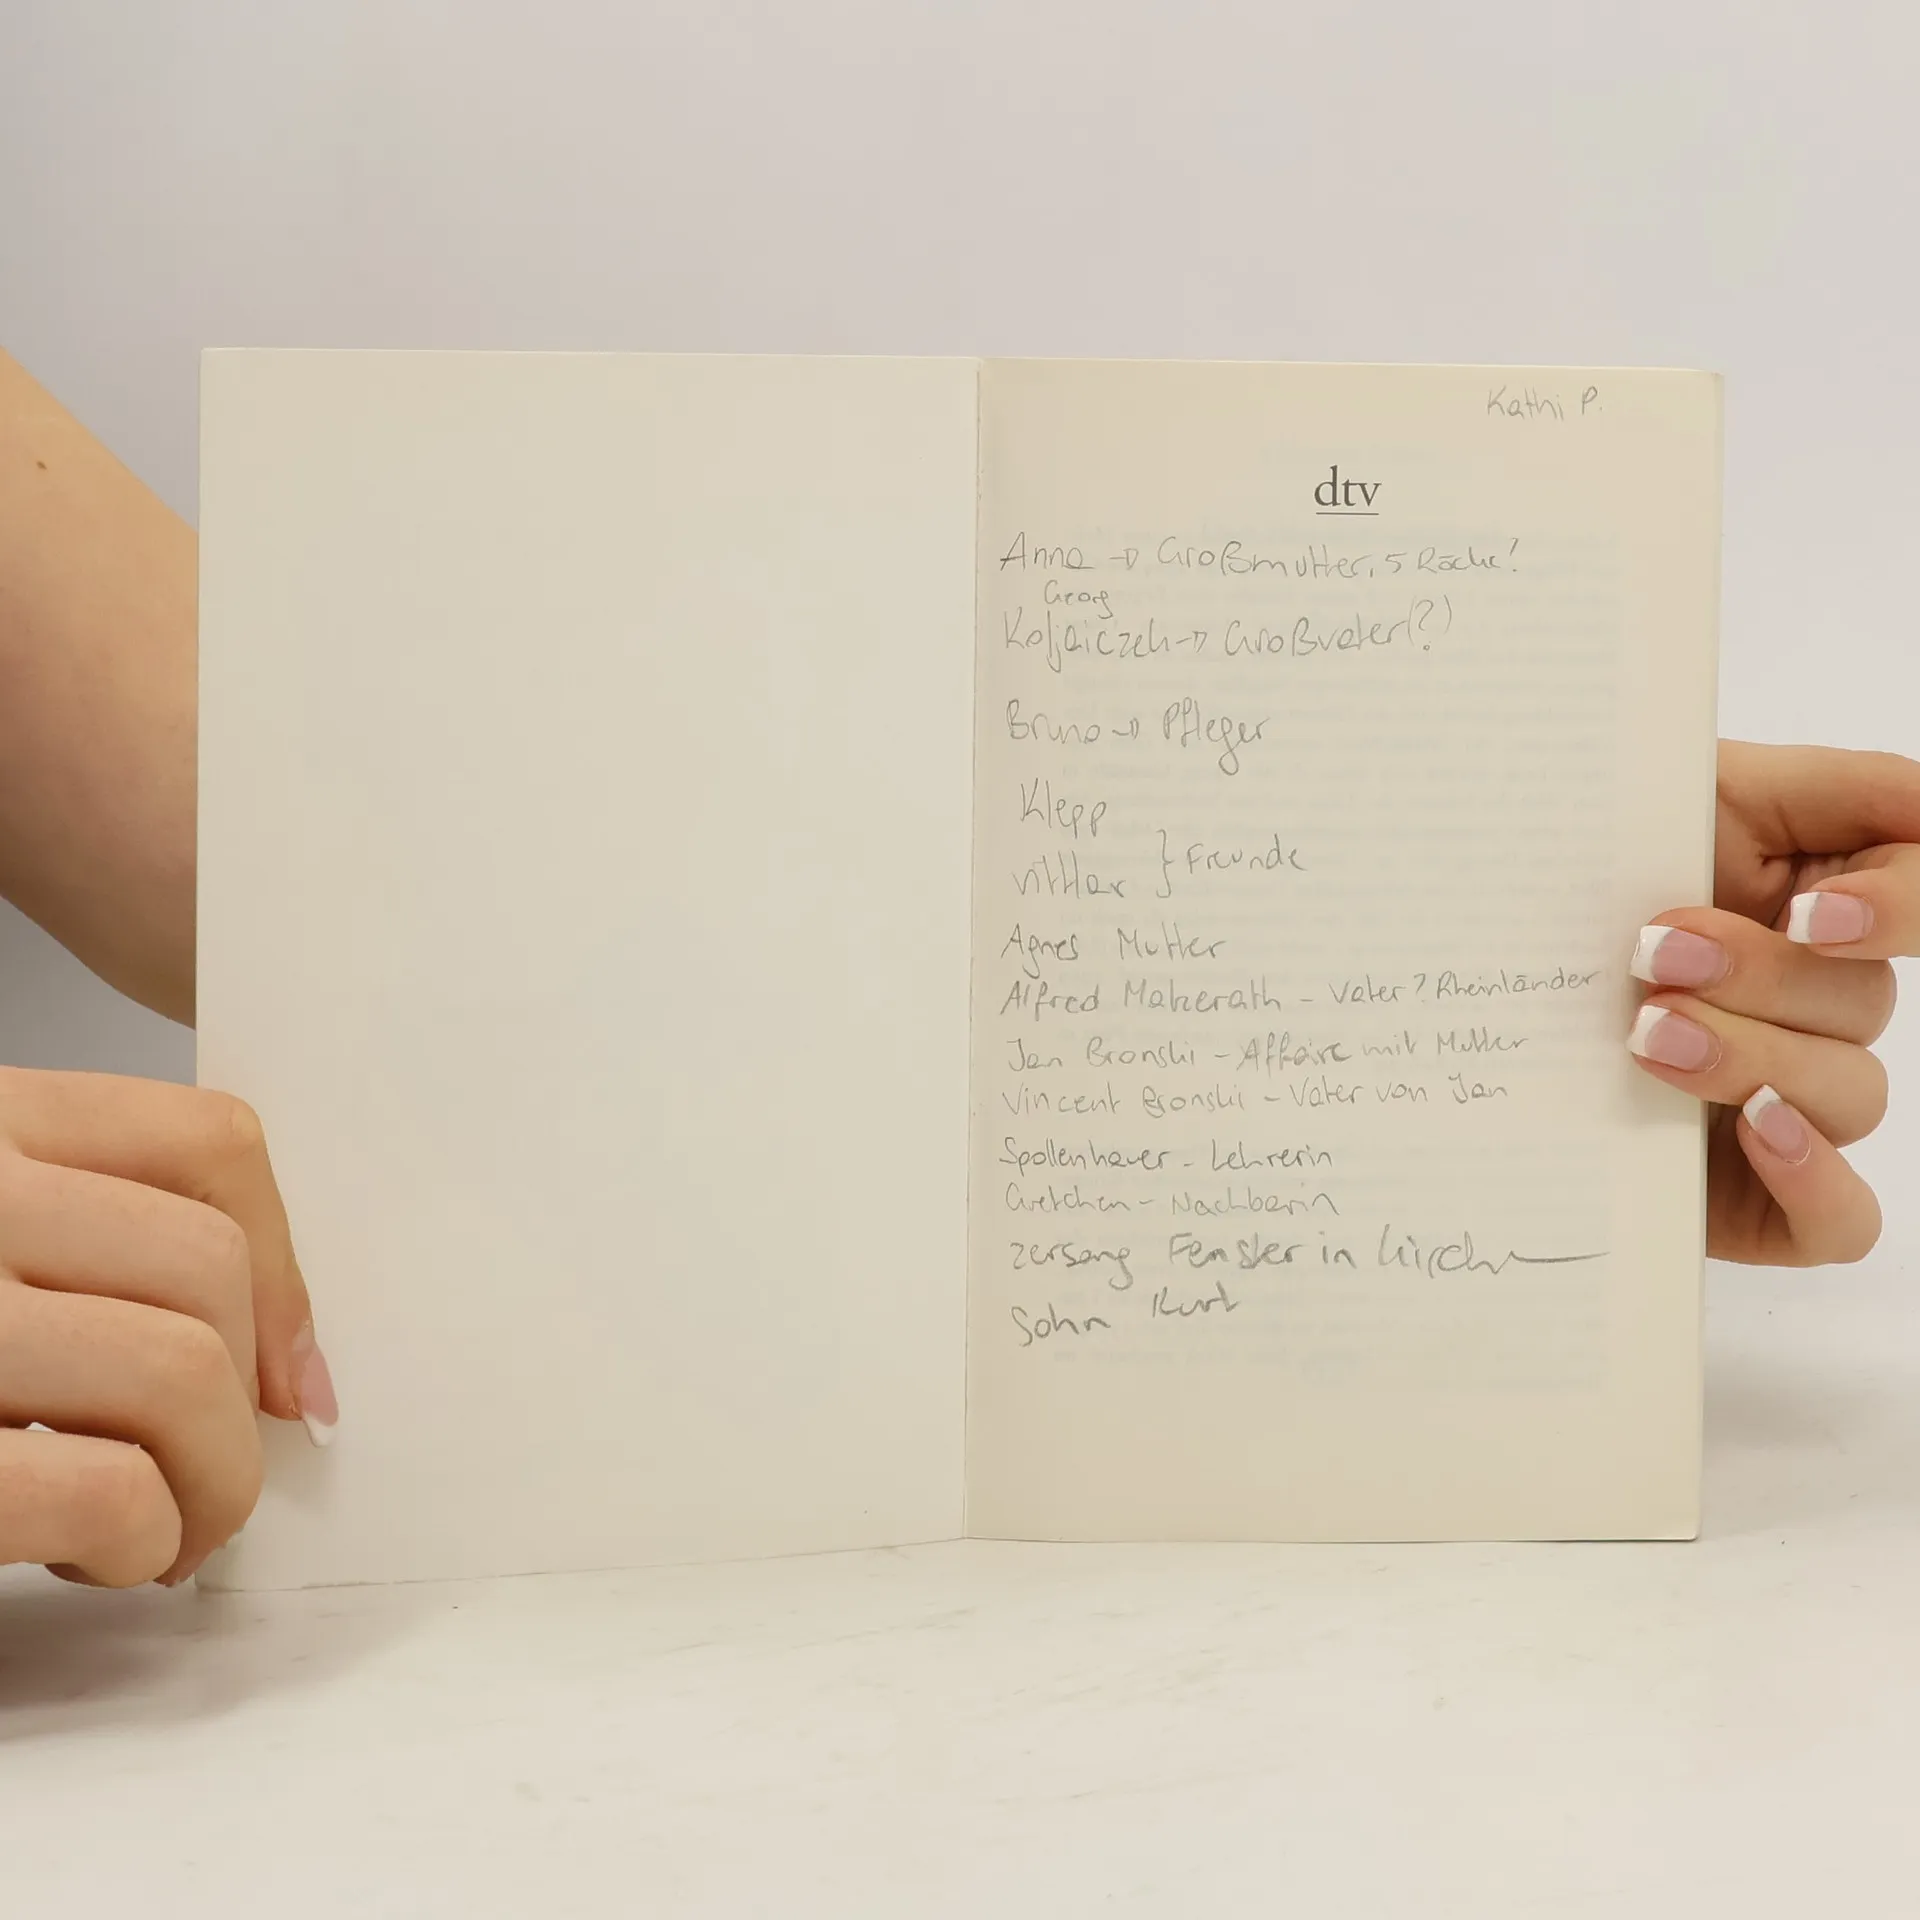 Kathi P.
dtv
Anna → Großmutter, 5 Röcke!
Georg
Koljaiczek → Großvater (?)
Bruno → Pfleger
Klepp
Vittlar } Freunde
Agnes Mutter
Alfred Matzerath - Vater? Rheinländer
Jan Bronski - Affäre mit Mutter
Vincent Bronski - Vater von Jan
Spollenhauer - Lehrerin
Gretchen - Nachbarin
zersang Fenster in Kirche
Sohn Kurt